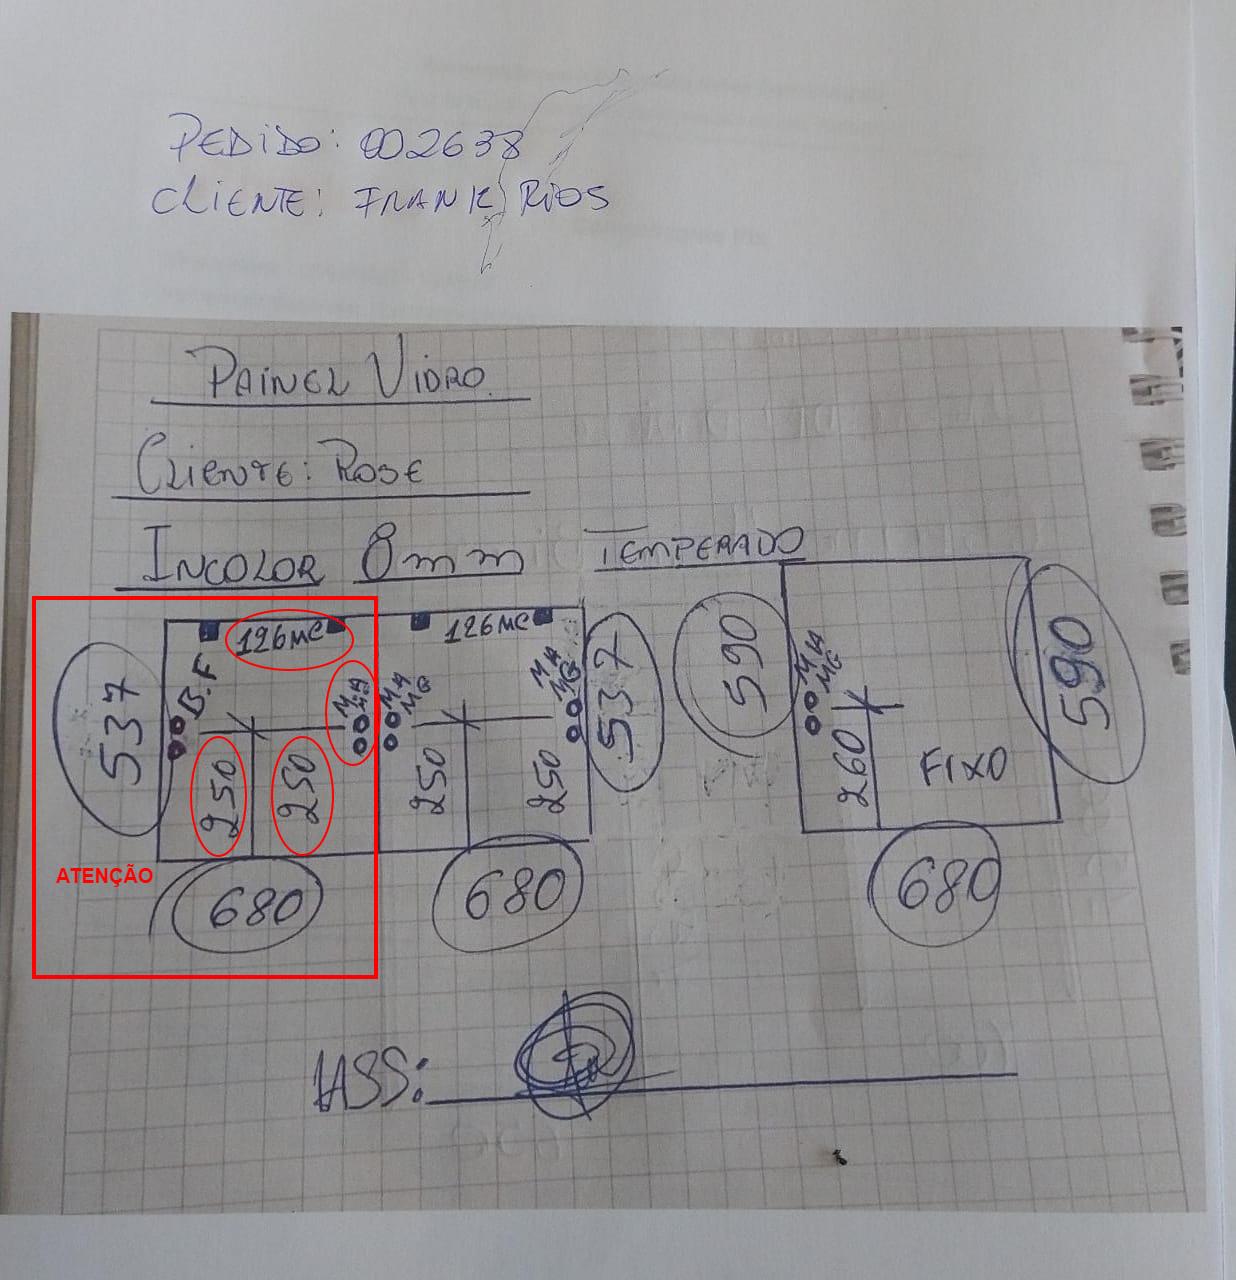 PEDIDO: 002638
CLIENTE: FRANK RIOS
PAINEL VIDRO
CLIENTE: ROSE
INCOLOR 8mm TEMPERADO
126MC 126MC
B.F MA MA MG MA MG MA MG
537 537 590 590
250 250 250 250 260 FIXO
ATENÇÃO
680 680 680
ASS: